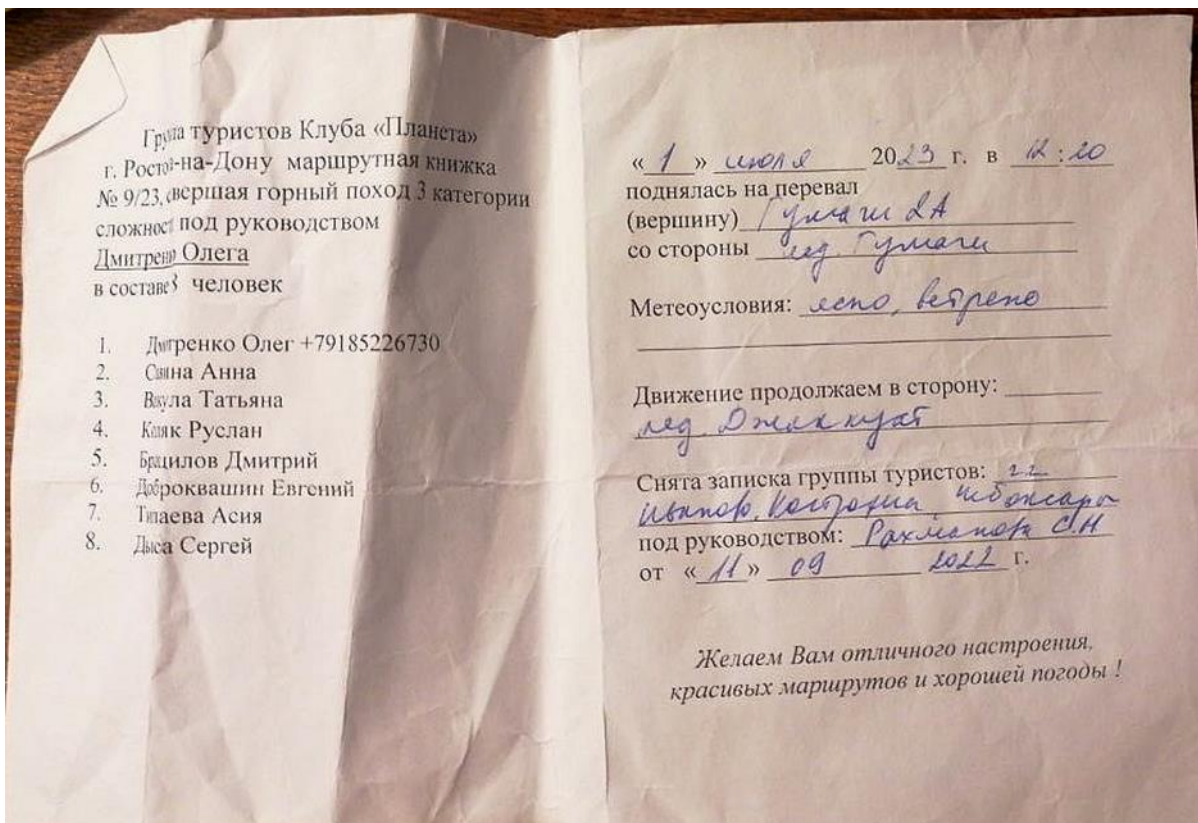 Группа туристов Клуба «Планета»
г. Ростов-на-Дону маршрутная книжка
№ 9/23, совершая горный поход 3 категории
сложности под руководством
Дмитренко Олега
в составе 8 человек
1. Дмитренко Олег +79185226730
2. Анна
3. Татьяна
4. Руслан
5. Брацилов Дмитрий
6. Доброквашин Евгений
7. Асия
8. Сергей
« 1 » июля 2023 г. в 12:20
поднялась на перевал
(вершину) Гумачи 2А
со стороны лед. Гумачи
Метеоусловия: ясно, ветрено
Движение продолжаем в сторону:
лед. Джанкуат
Снята записка группы туристов: г.г.
Иваново, Кострома, Чебоксары
под руководством: С.Н
от « 11 » 09 2022 г.
Желаем Вам отличного настроения,
красивых маршрутов и хорошей погоды !